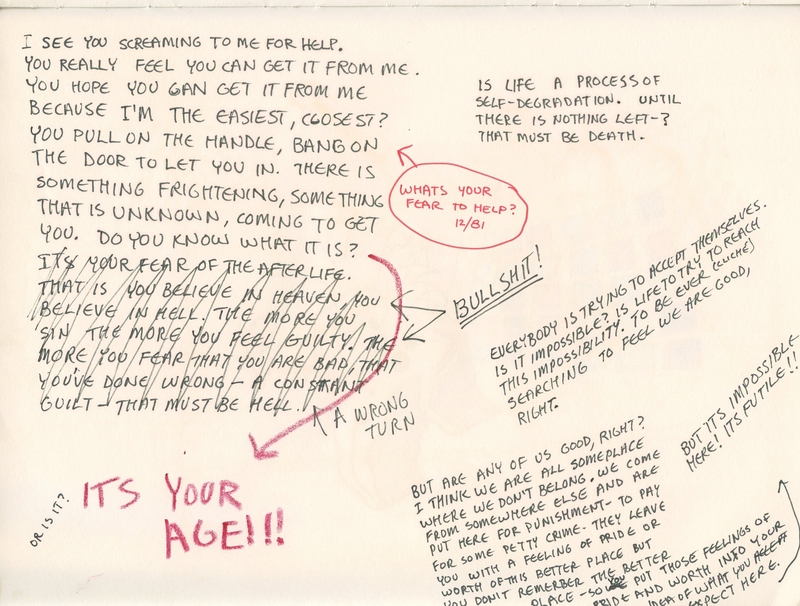 I SEE YOU SCREAMING TO ME FOR HELP.
YOU REALLY FEEL YOU CAN GET IT FROM ME.
YOU HOPE YOU CAN GET IT FROM ME
BECAUSE I'M THE EASIEST, CLOSEST?
YOU PULL ON THE HANDLE, BANG ON
THE DOOR TO LET YOU IN. THERE IS
SOMETHING FRIGHTENING, SOMETHING
THAT IS UNKNOWN, COMING TO GET
YOU. DO YOU KNOW WHAT IT IS?
IT'S YOUR FEAR OF THE AFTERLIFE.
THAT IS YOU BELIEVE IN HEAVEN, YOU
BELIEVE IN HELL. THE MORE YOU
SIN THE MORE YOU FEEL GUILTY. THE
MORE YOU FEAR THAT YOU ARE BAD, THAT
YOU'VE DONE WRONG - A CONSTANT
GUILT - THAT MUST BE HELL.
WHATS YOUR
FEAR TO HELP?
12/81
BULLSHIT!
A WRONG
TURN
OR IS IT?
ITS YOUR
AGE!!!
IS LIFE A PROCESS OF
SELF-DEGRADATION. UNTIL
THERE IS NOTHING LEFT-?
THAT MUST BE DEATH.
EVERYBODY IS TRYING TO ACCEPT THEMSELVES.
IS IT IMPOSSIBLE? IS LIFE TO TRY TO REACH
THIS IMPOSSIBILITY. TO BE EVER (CLICHÉ)
SEARCHING TO FEEL WE ARE GOOD,
RIGHT.
BUT IT'S IMPOSSIBLE
HERE! ITS FUTILE!!
BUT ARE ANY OF US GOOD, RIGHT?
I THINK WE ARE ALL SOMEPLACE
WHERE WE DON'T BELONG. WE COME
FROM SOMEWHERE ELSE AND ARE
PUT HERE FOR PUNISHMENT- TO PAY
FOR SOME PETTY CRIME. THEY LEAVE
YOU WITH A FEELING OF PRIDE OR
WORTH OF THIS BETTER PLACE BUT
YOU DON'T REMEMBER THE BETTER
PLACE - SO YOU PUT THOSE FEELINGS OF
PRIDE AND WORTH INTO YOUR
IDEA OF WHAT YOU
EXPECT HERE.